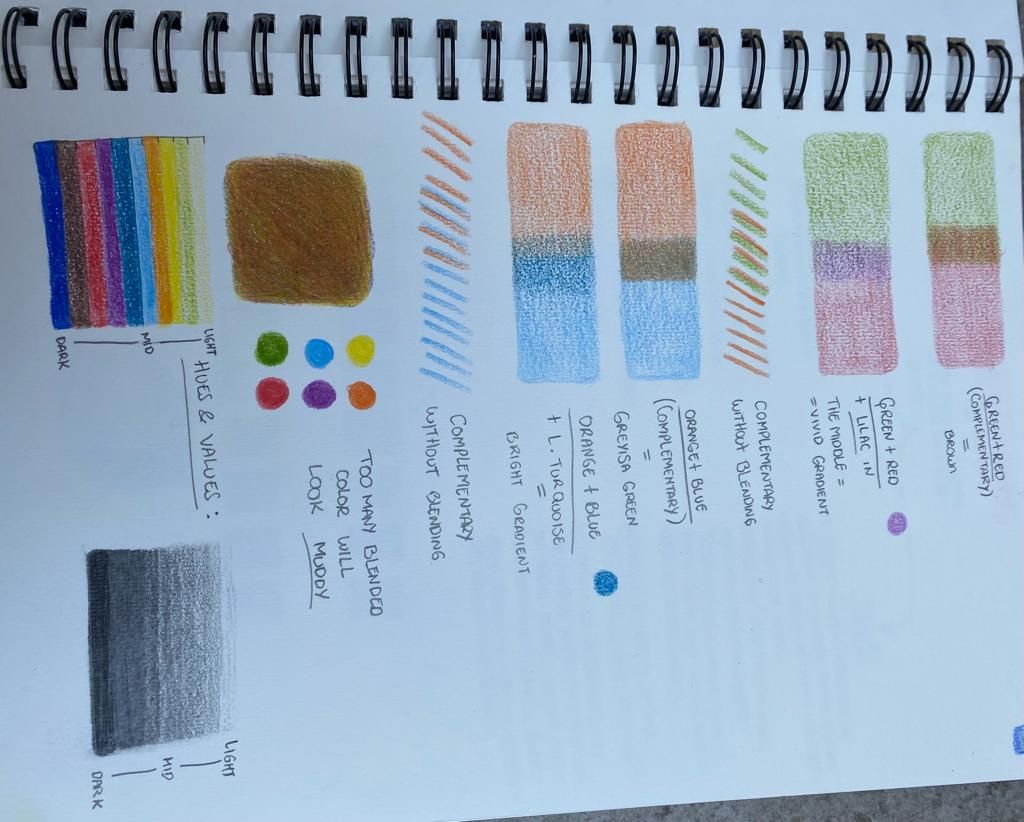 GREEN+RED
(COMPLEMENTARY)
=
BROWN
GREEN + RED
+ LILAC IN
THE MIDDLE =
=VIVID GRADIENT
COMPLEMENTARY
WITHOUT BLENDING
ORANGE+BLUE
(COMPLEMENTARY)
=
GREYISA GREEN
ORANGE + BLUE
+ L. TURQUOISE
=
BRIGHT GRADIENT
COMPLEMENTARY
WITHOUT BLENDING.
TOO MANY BLENDED
COLOR WILL
LOOK MUDDY
HUES & VALUES :
LIGHT
MID
DARK
LIGHT
MID
DARK